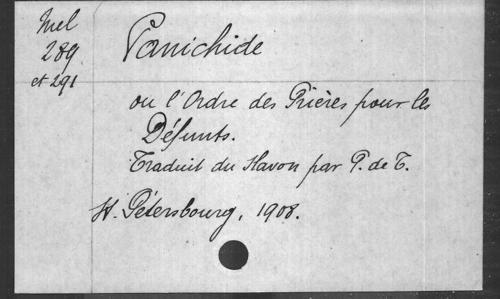 Mel
289
et 291
Panichide
ou l'Ordre des Prières pour les
Défunts.
Traduit du slavon par P. de T.
St. Pétersbourg, 1908.